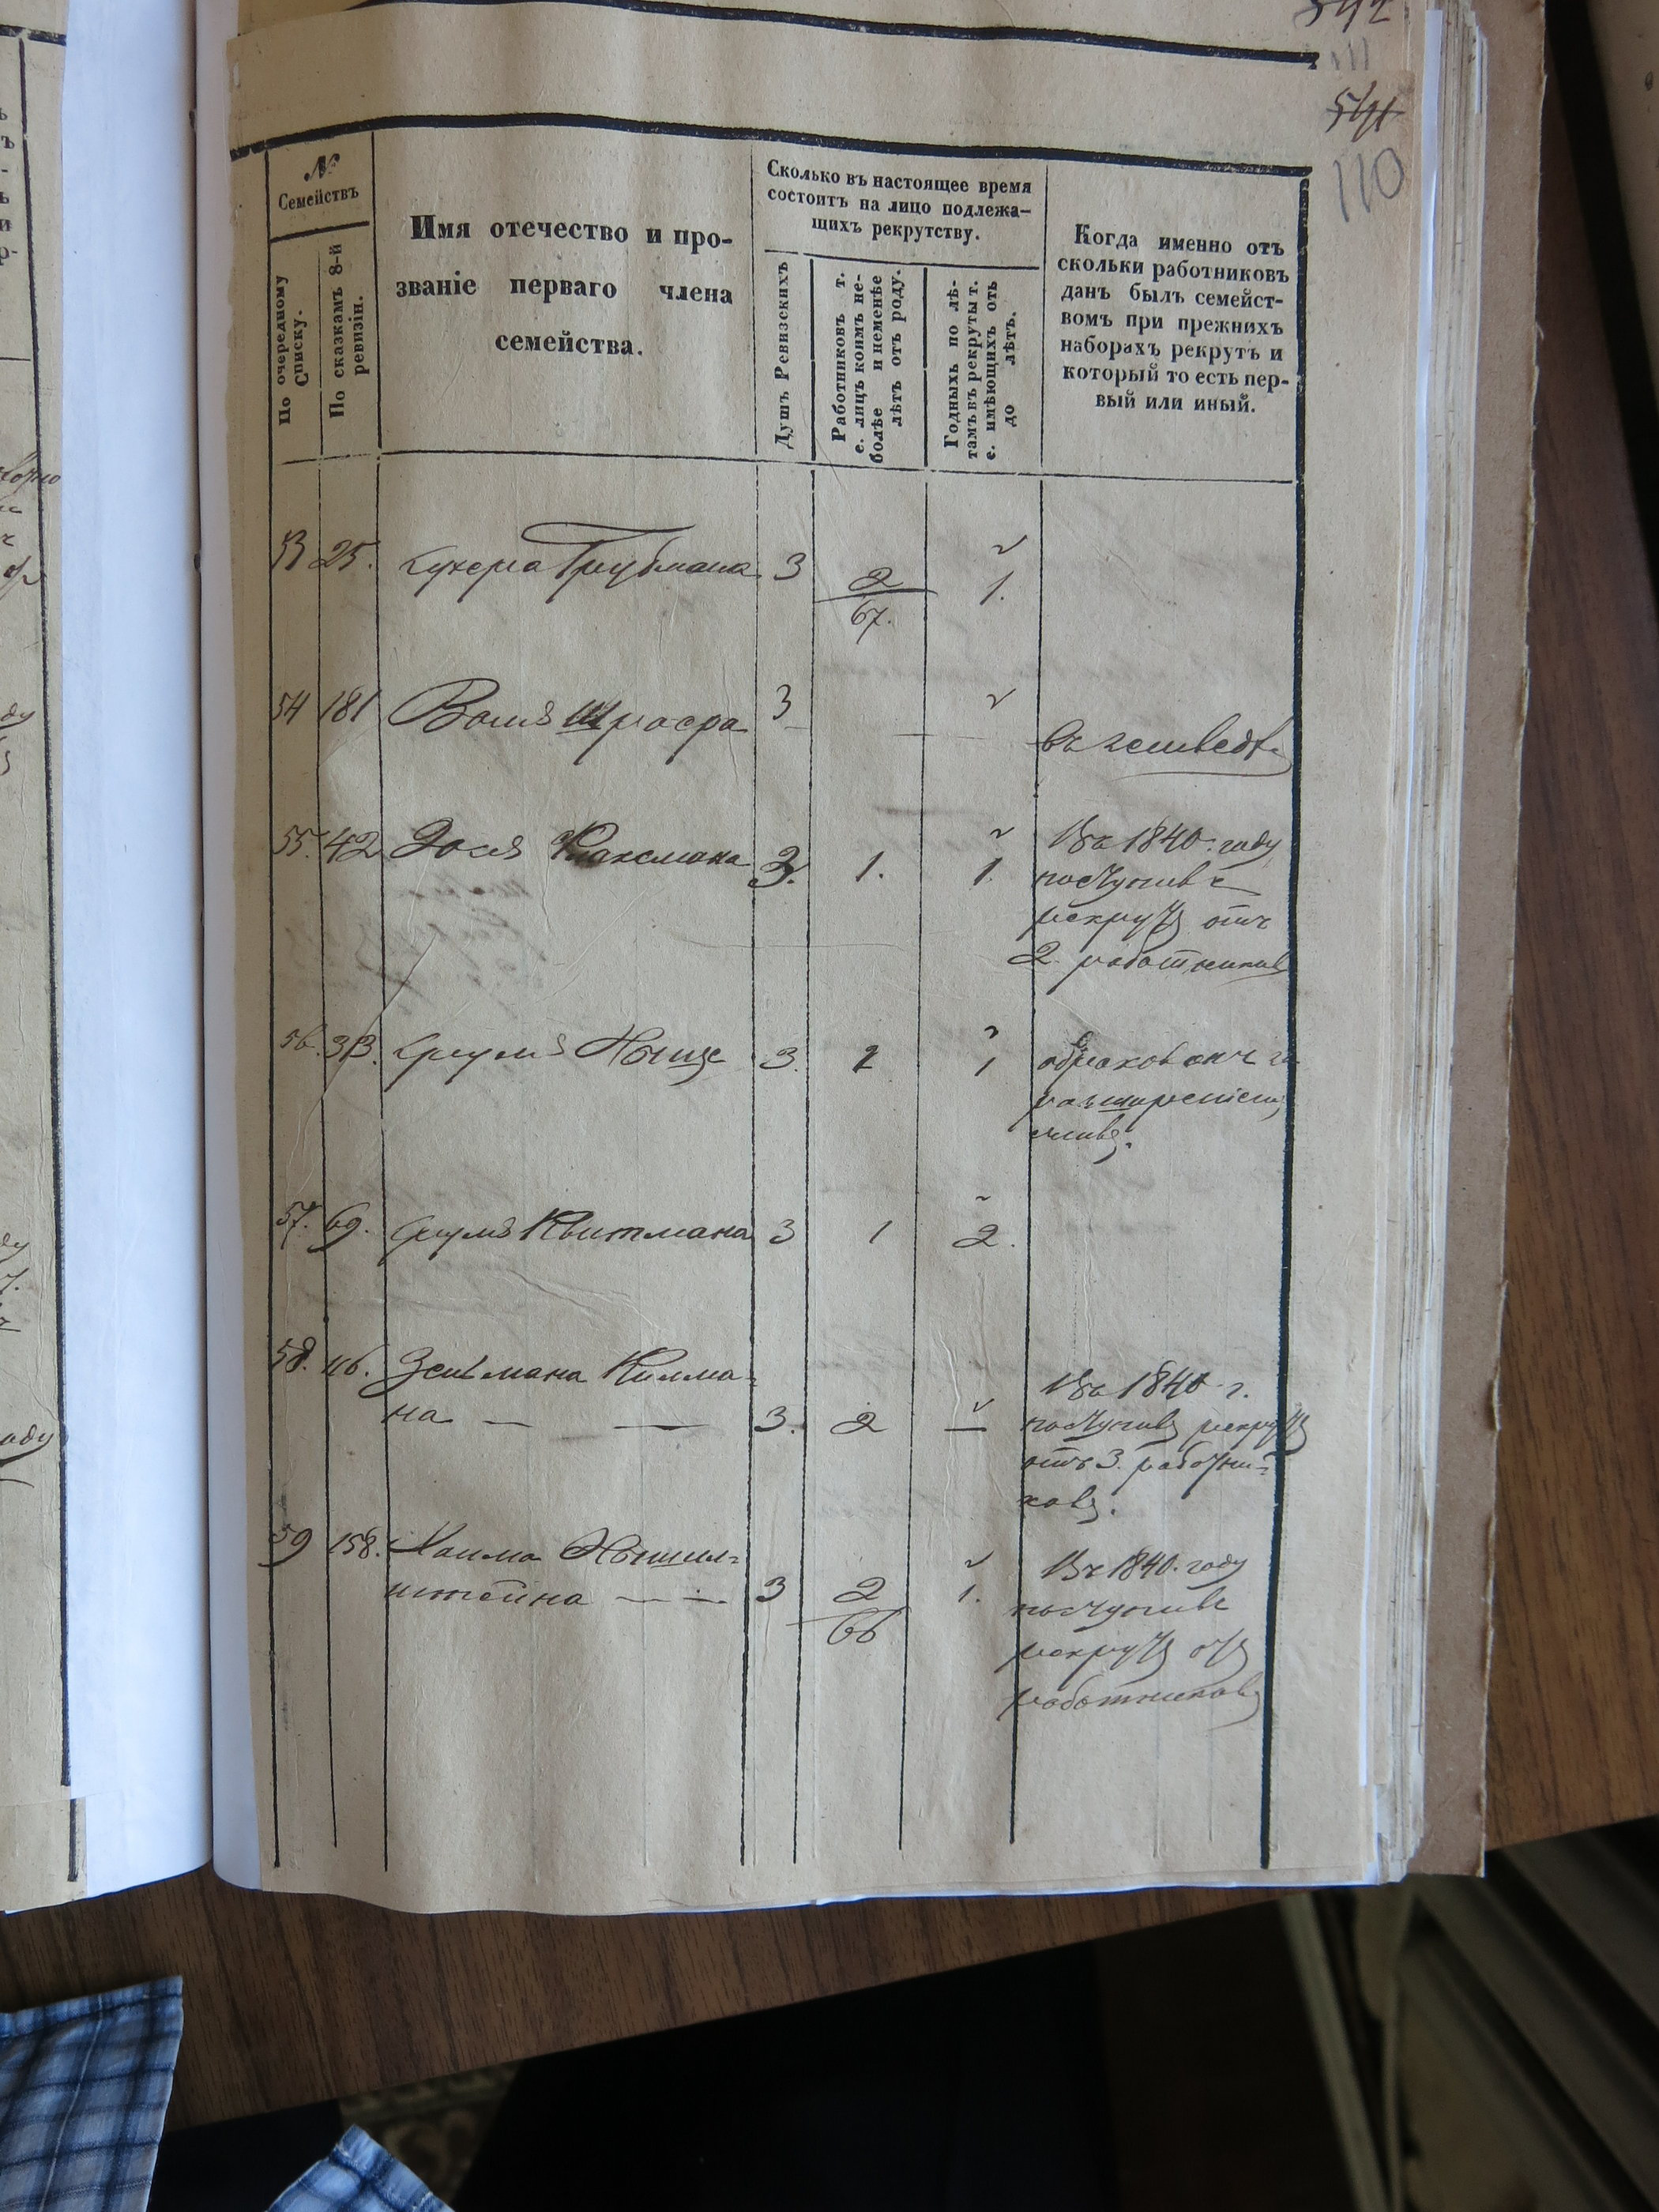 542
111
541
110
№
Семействъ
По очередному
Списку.
По сказкамъ 8-й
ревизіи.
Имя отечество и про-
званіе перваго члена
семейства.
Сколько въ настоящее время
состоитъ на лицо подлежа-
щихъ рекрутству.
Душъ Ревизскихъ
Работниковъ т.
е. лицъ коимъ не-
болѣе и неменѣе
лѣтъ отъ роду.
Годныхъ по лѣ-
тамъ въ рекруты т.
е. имѣющихъ отъ
до лѣтъ.
Когда именно отъ
скольки работниковъ
данъ былъ семейст-
вомъ при прежнихъ
наборахъ рекрутъ и
который то есть пер-
вый или иный.
53 25. Сухера Грубмана 3 2/67. 1.
54 181 3
55. 42 3. 1. 1. Въ 1840. году
поступивъ
рекрутъ отъ
2. работниковъ
56. 33. Сруль 3. 1 обракованъ за
разширеніемъ
57. 69. Сруль Квитмана 3 1 2.
58. 116. Зельмана Килма-
на — — 3. 2 — Въ 1840 г.
поступивъ рекрутъ
отъ 3. работни-
ковъ.
59 158. Хаима
штейна — — 3 2/66 1. Въ 1840. году
поступивъ
рекрутъ отъ
работниковъ